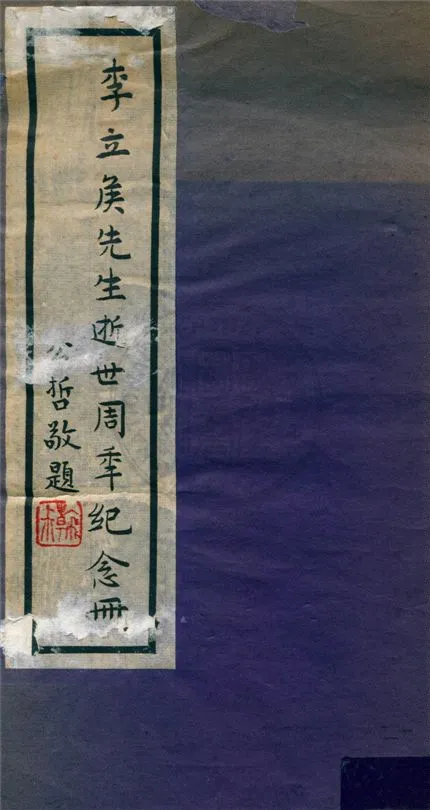 李立侯先生逝世周年纪念冊
公哲敬題